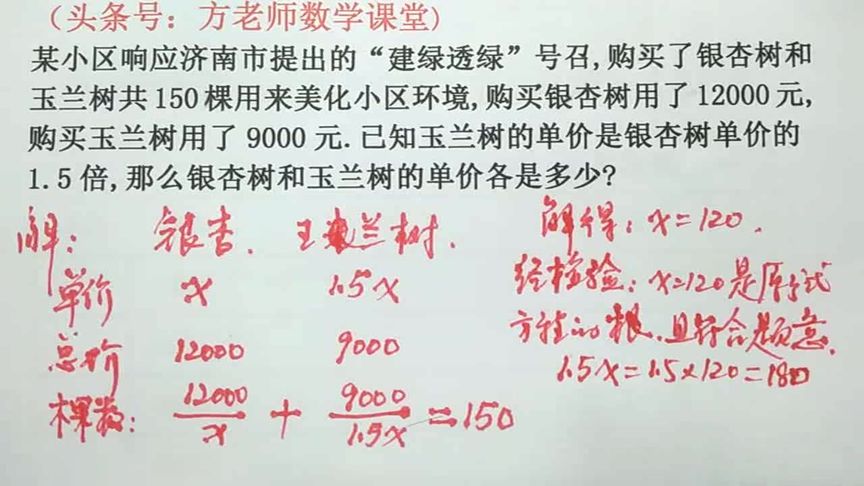 （头条号：方老师数学课堂)
某小区响应济南市提出的“建绿透绿”号召,购买了银杏树和
玉兰树共150棵用来美化小区环境,购买银杏树用了12000元,
购买玉兰树用了 9000 元.已知玉兰树的单价是银杏树单价的
1.5 倍,那么银杏树和玉兰树的单价各是多少?
解： 银杏. 玉兰树.
单价 x 1.5x
总价 12000 9000
棵数: 12000/x + 9000/1.5x =150
解得：x=120.
经检验：x=120是原分式
方程的根,且符合题意.
1.5x=1.5×120=180